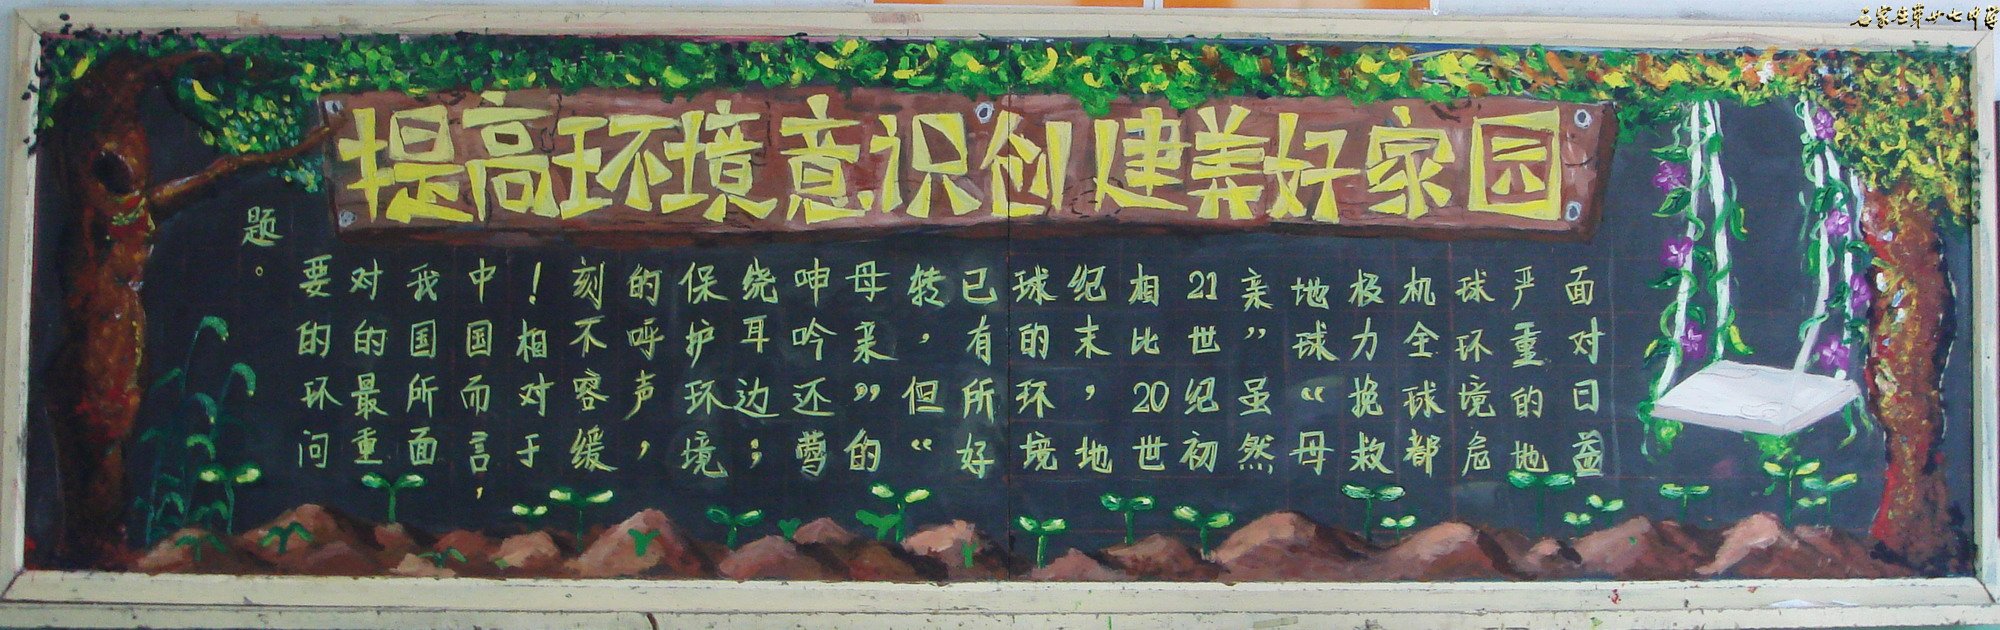 石家庄第廿七中学
提高环境意识创建美好家园
面对日益
严重的地
球环境危
机全球都
极力挽救
地球“母
亲”虽然
21世纪初
相比20世
纪末，地
球的环境
已有所好
转，但“
母亲”的
呻吟还莺
绕耳边；
保护环境
的呼声，
刻不容缓
！相对于
中国而言，
我国所面
对的最重
要的环问
题。